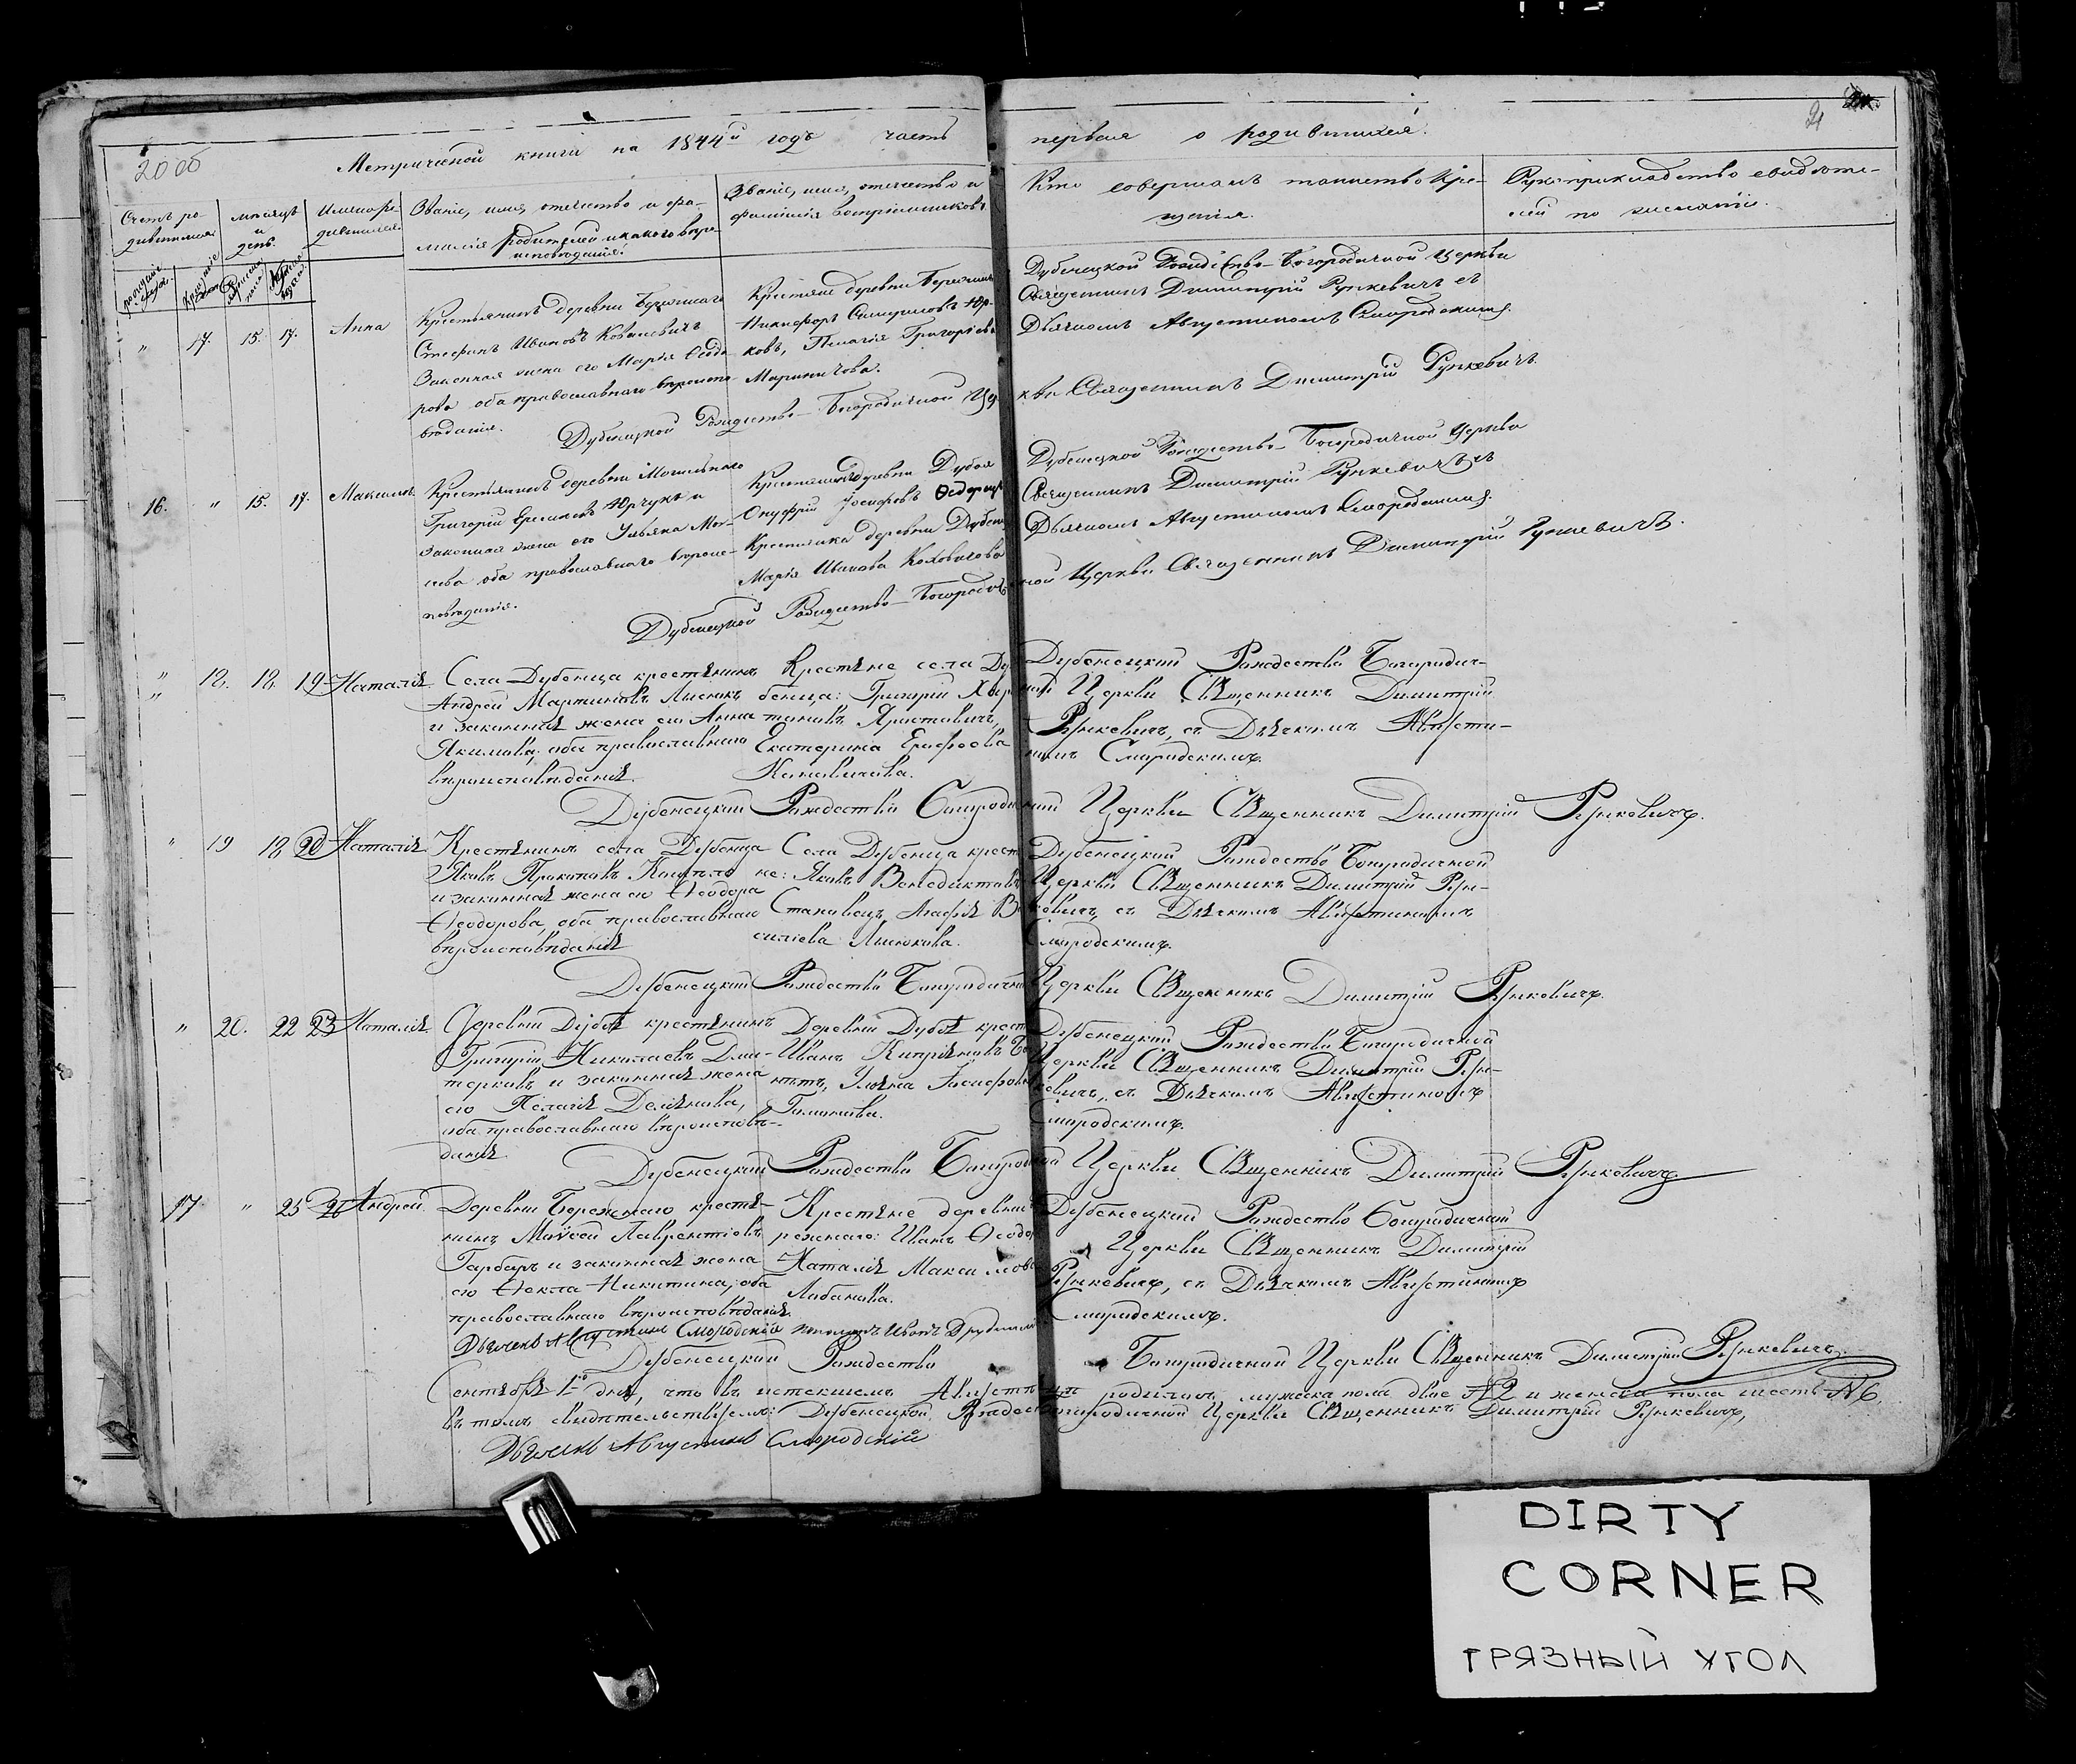 20 об
Метрической книги на 1844й годъ часть первая о родившихся.
Счетъ родившихся
мѣсяцъ и день
Имена родившихся
Званіе, имя, отечество и фамилія родителей и какого вѣроисповѣданія.
Званіе, имя, отечество и фамилія воспріемниковъ
Кто совершалъ таинство крещенія.
Рукоприкладство свидѣтелей по желанію.
" 17. 15. 17. Анна
Крестьянинъ деревни Бережнаго
Стефанъ Ивановъ Ковалевичъ
Законная жена его Марія Ѳеодорова оба православнаго вѣроисповѣданія.
Крестьяне деревни
Никифоръ
Пелагія Григоріева
Мариничова.
Дубенецкой Рождество-Богородичной Церкви
Священникъ Димитрій Рункевичъ съ
Дьячкомъ Августиномъ Смородскимъ.
Дубенецкой Рождество-Богородичной Церкви Священникъ Димитрій Рункевичъ.
16. " 15. 17. Максимъ
Крестьянинъ деревни
Григорій Юрчукъ и
законная жена его Ульяна
оба православнаго вѣроисповѣданія.
Крестьянинъ деревни Дубоя
Онуфрій Іосифовъ
Крестьянка деревни
Марія Иванова
Дубенецкой Рождество-Богородичной Церкви
Священникъ Димитрій Рункевичъ съ
Дьячкомъ Августиномъ Смородскимъ.
Дубенецкой Рождество-Богородичной Церкви Священникъ Димитрій Рункевичъ.
" 18. 18. 19 Наталія
Села Дубенца крестянинъ
Андрей Мартиновъ
и законная жена его Анна
Якимова, оба православнаго
вѣроисповѣданія.
Крестяне села Дубенца: Григорій
Екатерина
Дубенецкой Рождество Богородичной Церкви Священникъ Димитрій
Рункевичъ, съ Дьячкомъ Августиномъ Смородскимъ.
Дубенецкой Рождество Богородичной Церкви Священникъ Димитрій Рункевичъ.
" 19 18 20 Наталія
Крестянинъ села Дубенца
Яковъ Прокоповъ
и законная жена его Ѳеодора
Ѳеодорова, оба православнаго
вѣроисповѣданія
Села Дубенца крестяне: Яковъ Венедиктовъ
Становецъ, Агафія Василіева
Дубенецкой Рождество Богородичной
Церкви Священникъ Димитрій Рункевичъ, съ Дьячкомъ Августиномъ
Смородскимъ.
Дубенецкой Рождество Богородичной Церкви Священникъ Димитрій Рункевичъ.
" 20. 22 23 Наталія
Деревни Дубоя крестянинъ
Григорій Николаевъ
и законная жена
его Пелагія
оба православнаго вѣроисповѣданія.
Деревни Дубоя
Иванъ Кипріяновъ
Уляна Іосифова
Дубенецкой Рождество Богородичной
Церкви Священникъ Димитрій Рункевичъ, съ Дьячкомъ Августиномъ
Смородскимъ.
Дубенецкой Рождество Богородичной Церкви Священникъ Димитрій Рункевичъ
17 " 25 26 Андрей
Деревни Бережнаго крестянинъ Моѵсей Лаврентіевъ
Гарбаръ и законная жена
его Ѳекла Никитина, оба
православнаго вѣроисповѣданія.
Крестяне деревни Бережнаго: Иванъ
Наталія Максимова
Лобанова.
Дубенецкой Рождество Богородичной
Церкви Священникъ Димитрій
Рункевичъ, съ Дьячкомъ Августиномъ
Смородскимъ.
Дьячекъ Августинъ Смородскій Иванъ
Дубенецкой Рождество Богородичной Церкви Священникъ Димитрій Рункевичъ.
Сентября 1го дня, что въ истекшемъ Августѣ родилось мужеска пола двое №2 и женска пола шесть №6,
въ томъ свидѣтельствуемъ: Дубенецкой Рождество Богородичной Церкви Священникъ Димитрій Рункевичъ,
Дьячекъ Августинъ Смородскій
DIRTY
CORNER
ГРЯЗНЫЙ УГОЛ